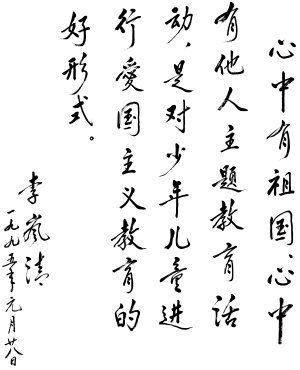 心中有祖国、心中
有他人主题教育活
动，是对少年儿童进
行爱国主义教育的
好形式。
李岚清
一九九五年元月廿八日